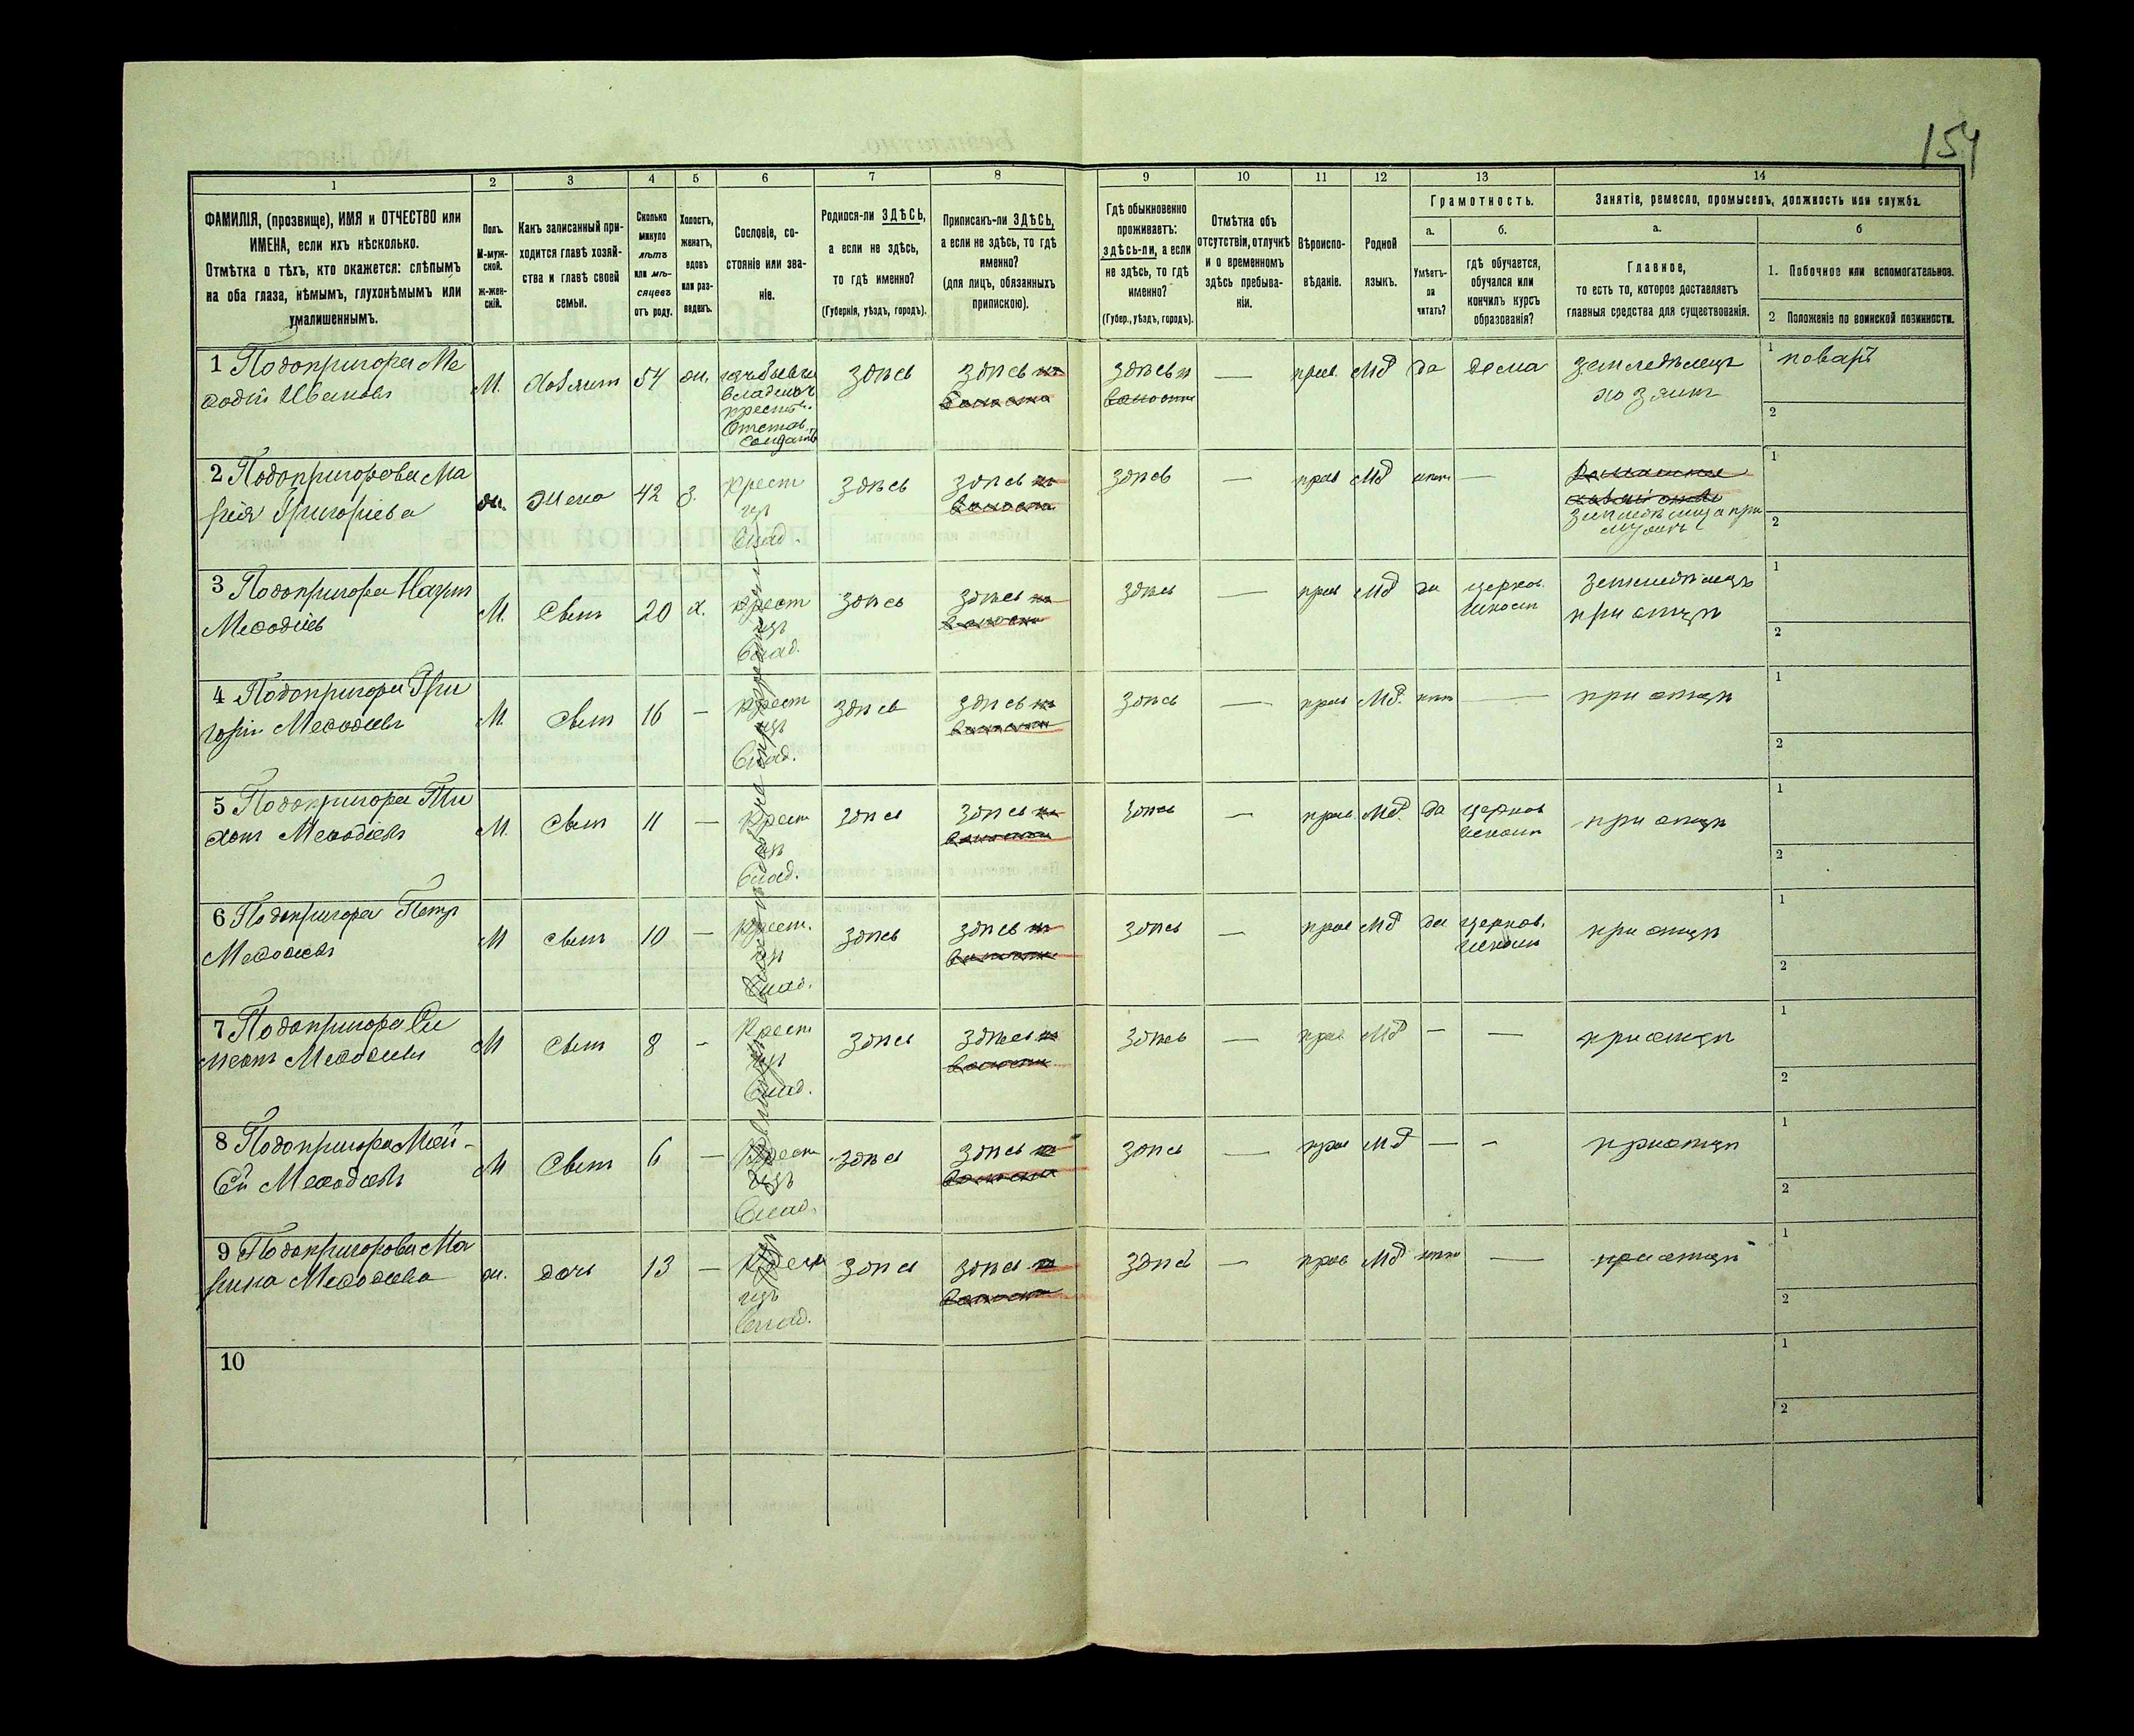 154
1 2 3 4 5 6 7 8 9 10 11 12 13 14
ФАМИЛІЯ, (прозвище), ИМЯ и ОТЧЕСТВО или
ИМЕНА, если ихъ нѣсколько.
Отмѣтка о тѣхъ, кто окажется: слѣпымъ
на оба глаза, нѣмымъ, глухонѣмымъ или
умалишеннымъ.
Полъ.
М-муж-
ской.
Ж-жен-
скій.
Какъ записанный при-
ходится главѣ хозяй-
ства и главѣ своей
семьи.
Сколько
минуло
лѣтъ
или мѣ-
сяцевъ
отъ роду.
Холостъ,
женатъ,
вдовъ
или раз-
веденъ.
Сословіе, со-
стояніе или зва-
ніе.
Родился-ли ЗДѢСЬ,
а если не здѣсь,
то гдѣ именно?
(Губернія, уѣздъ, городъ).
Приписанъ-ли ЗДѢСЬ,
а если не здѣсь, то гдѣ
именно?
(для лицъ, обязанныхъ
припискою).
Гдѣ обыкновенно
проживаетъ:
здѣсь-ли, а если
не здѣсь, то гдѣ
именно?
(Губер., уѣздъ, городъ).
Отмѣтка объ
отсутствіи, отлучкѣ
и о временномъ
здѣсь пребыва-
ніи.
Вѣроиспо-
вѣданіе.
Родной
языкъ.
Грамотность.
а.
Умѣетъ-
ли
читать?
б.
гдѣ обучается,
обучался или
кончилъ курсъ
образованія?
Занятіе, ремесло, промыселъ, должность или служба.
а.
Главное,
то есть то, которое доставляетъ
главныя средства для существованія.
б
1. Побочное или вспомогательное.
2 Положеніе по воинской повинности.
1 Подопригора Ме
ѳодій Ивановъ
М. Хозяинъ 54 ж. здѣсь здѣсь здѣсь — прав. Мд да дома земледѣлецъ
хозяинъ
1 поваръ
2
2 Подопригорова Ма
рія Григорьева
ж. Жена 42 з. крест
изъ
влад.
здѣсь здѣсь здѣсь — прав Мд нѣтъ —
1
2
3 Подопригора Наумъ
Меѳодіевъ
М. Сынъ 20 х. крест
изъ
влад.
здѣсь здѣсь здѣсь — прав Мд да церков.
школа
земледѣлецъ
при отцѣ
1
2
4 Подопригора Гри
горій Меѳодіевъ
М. Сынъ 16 — крест
изъ
влад.
здѣсь здѣсь здѣсь — прав Мд. нѣтъ — при отцѣ
1
2
5 Подопригора Ти
хонъ Меѳодіевъ
М. Сынъ 11 — крест
изъ
влад.
здѣсь здѣсь здѣсь — прав. Мд. да церков
школа
при отцѣ
1
2
6 Подопригора Петръ
Меѳодіевъ
М сынъ 10 — крест.
изъ
влад.
здѣсь здѣсь здѣсь — прав Мд да церков.
школа
при отцѣ
1
2
7 Подопригора Си
меонъ Меѳодіевъ
М Сынъ 8 — Крест
изъ
влад.
здѣсь здѣсь здѣсь — прав Мд — — при отцѣ
1
2
8 Подопригора Мой-
сей Меѳодіевъ
М Сынъ 6 — Крест
изъ
влад.
здѣсь здѣсь здѣсь — прав Мд — — при отцѣ
1
2
9 Подопригорова Ма
рина Меѳодіева
ж. дочь 13 — крест
изъ
влад.
здѣсь здѣсь здѣсь — прав Мд нѣтъ — при отцѣ
1
2
10
1
2